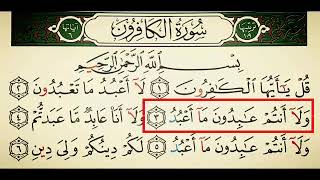 سُورَةُ الكَافِرُونَ
بِسْمِ اللَّهِ الرَّحْمَٰنِ الرَّحِيمِ
قُلْ يَا أَيُّهَا الْكَافِرُونَ ١ لَا أَعْبُدُ مَا تَعْبُدُونَ ٢
وَلَا أَنتُمْ عَابِدُونَ مَا أَعْبُدُ ٣ وَلَا أَنَا عَابِدٌ مَّا عَبَدتُّمْ ٤
وَلَا أَنتُمْ عَابِدُونَ مَا أَعْبُدُ ٥ لَكُمْ دِينُكُمْ وَلِيَ دِينِ ٦